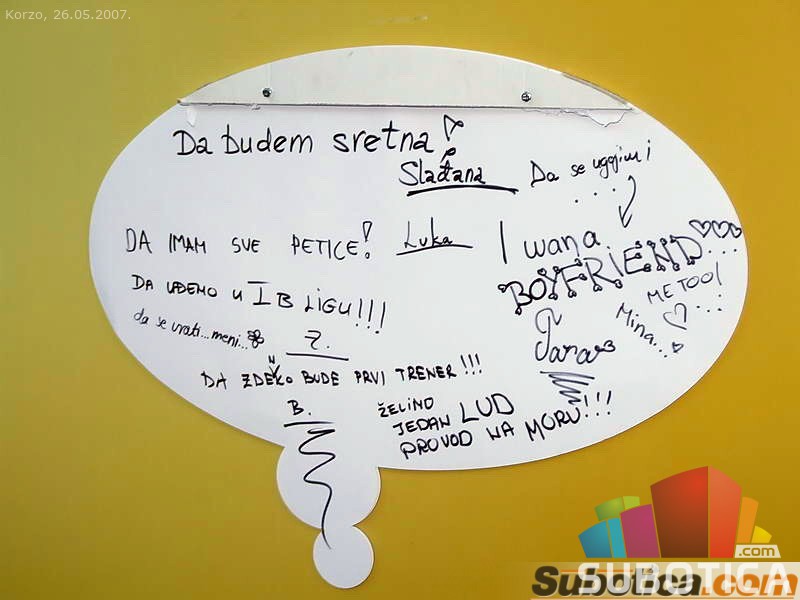 Korzo, 26.05.2007.
Da budem sretna!
Slađana
Da se ugojim i
...
DA IMAM SVE PETICE!
Luka
I wana
BOYFRIEND...
ME TOO!
...
Mina...
DA UĐEMO U I B LIGU!!!
da se vrati...meni...
7.
DA ZDENKO BUDE PRVI TRENER!!!
B.
ŽELIMO
JEDAN LUD
PROVOD NA MORU!!!
.com
SUBOTICA
Subotica.com